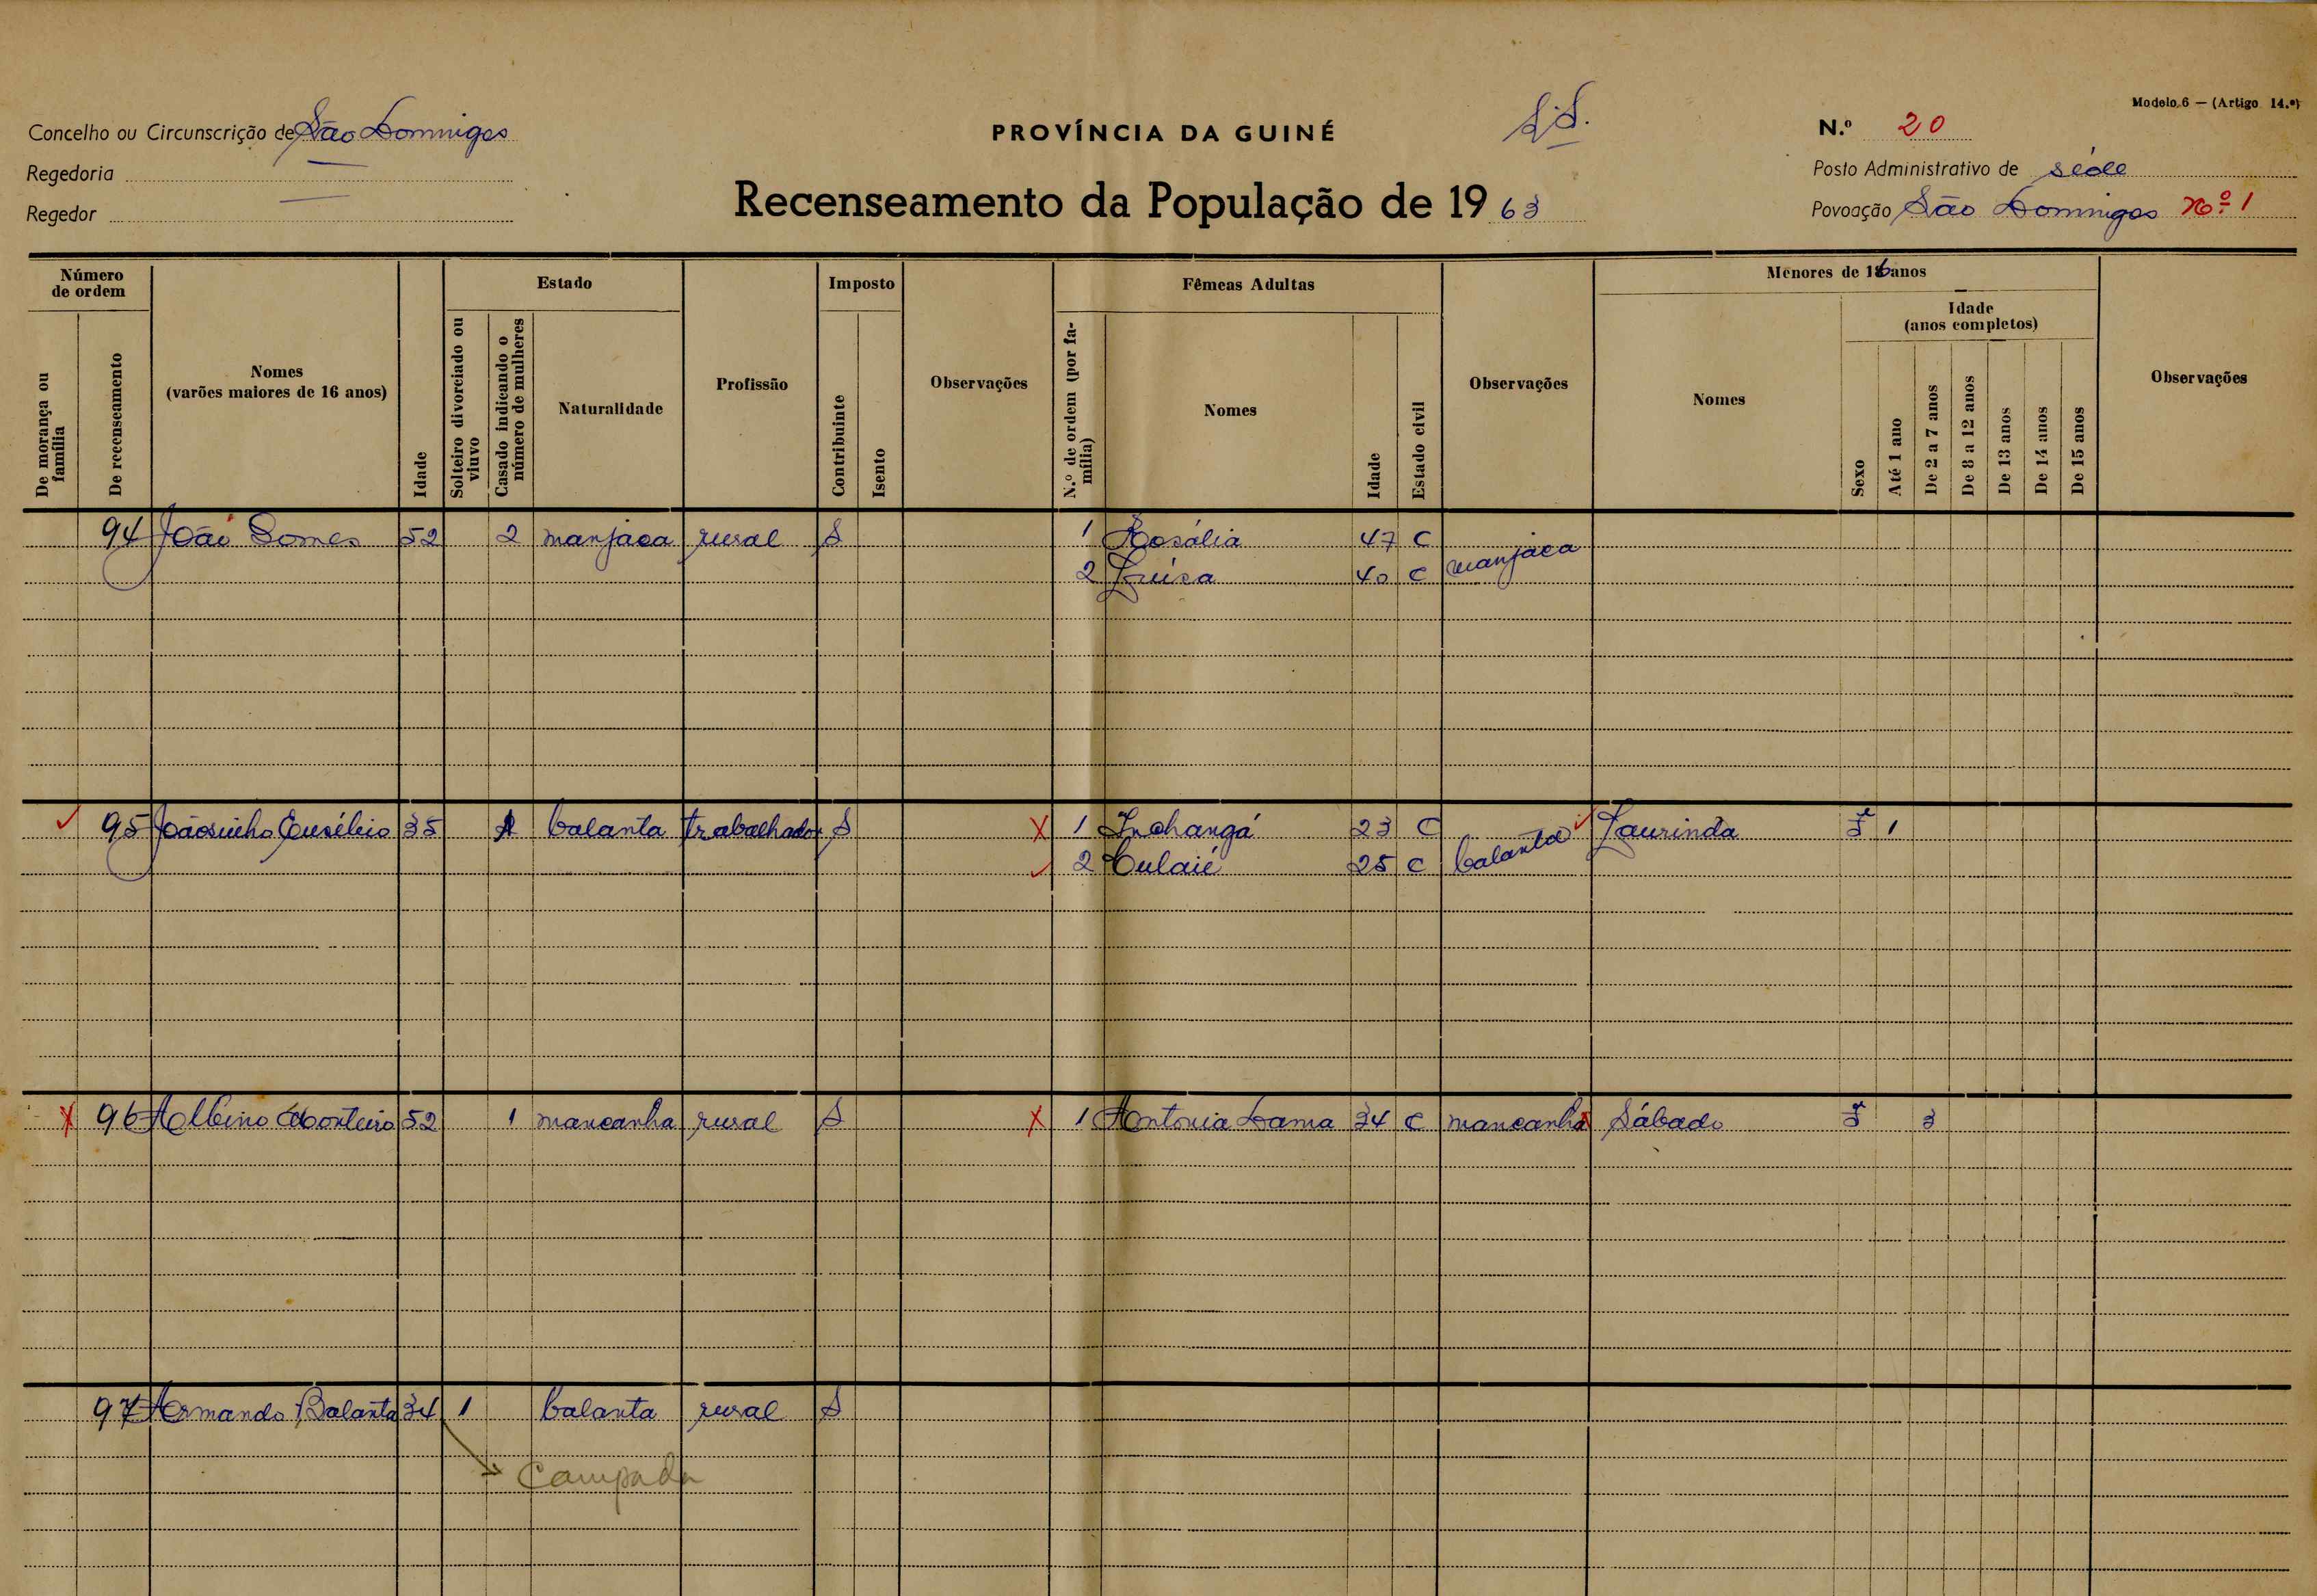 Modelo 6 — (Artigo 14.º)
Concelho ou Circunscrição de São Domingos
PROVÍNCIA DA GUINÉ
S.S.
N.º 20
Regedoria
Posto Administrativo de séde
Regedor
Recenseamento da População de 19 63
Povoação São Domingos Nº 1
Número de ordem
De morança ou família
De recenseamento
Nomes
(varões maiores de 16 anos)
Idade
Estado
Solteiro divorciado ou viuvo
Casado indicando o número de mulheres
Naturalidade
Profissão
Imposto
Contribuinte
Isento
Observações
Fêmeas Adultas
N.º de ordem (por família)
Nomes
Idade
Estado civil
Observações
Menores de 16 anos
Nomes
Sexo
Idade
(anos completos)
Até 1 ano
De 2 a 7 anos
De 8 a 12 anos
De 13 anos
De 14 anos
De 15 anos
Observações
94 João Gomes 52 2 manjaca rural S 1 Rosália 47 C manjaca
2 Luisa 40 C
95 Joãosinho Eusébio 35 balanta trabalhador S X 1 Inchangá 23 C balanta Laurinda F 1
2 Culaié 25 C
X 96 Albino Monteiro 52 1 mancanha rural S X 1 Antonia Lama 34 C mancanha Sábado F 3
97 Armando Balanta 34 1 balanta rural S
Campada